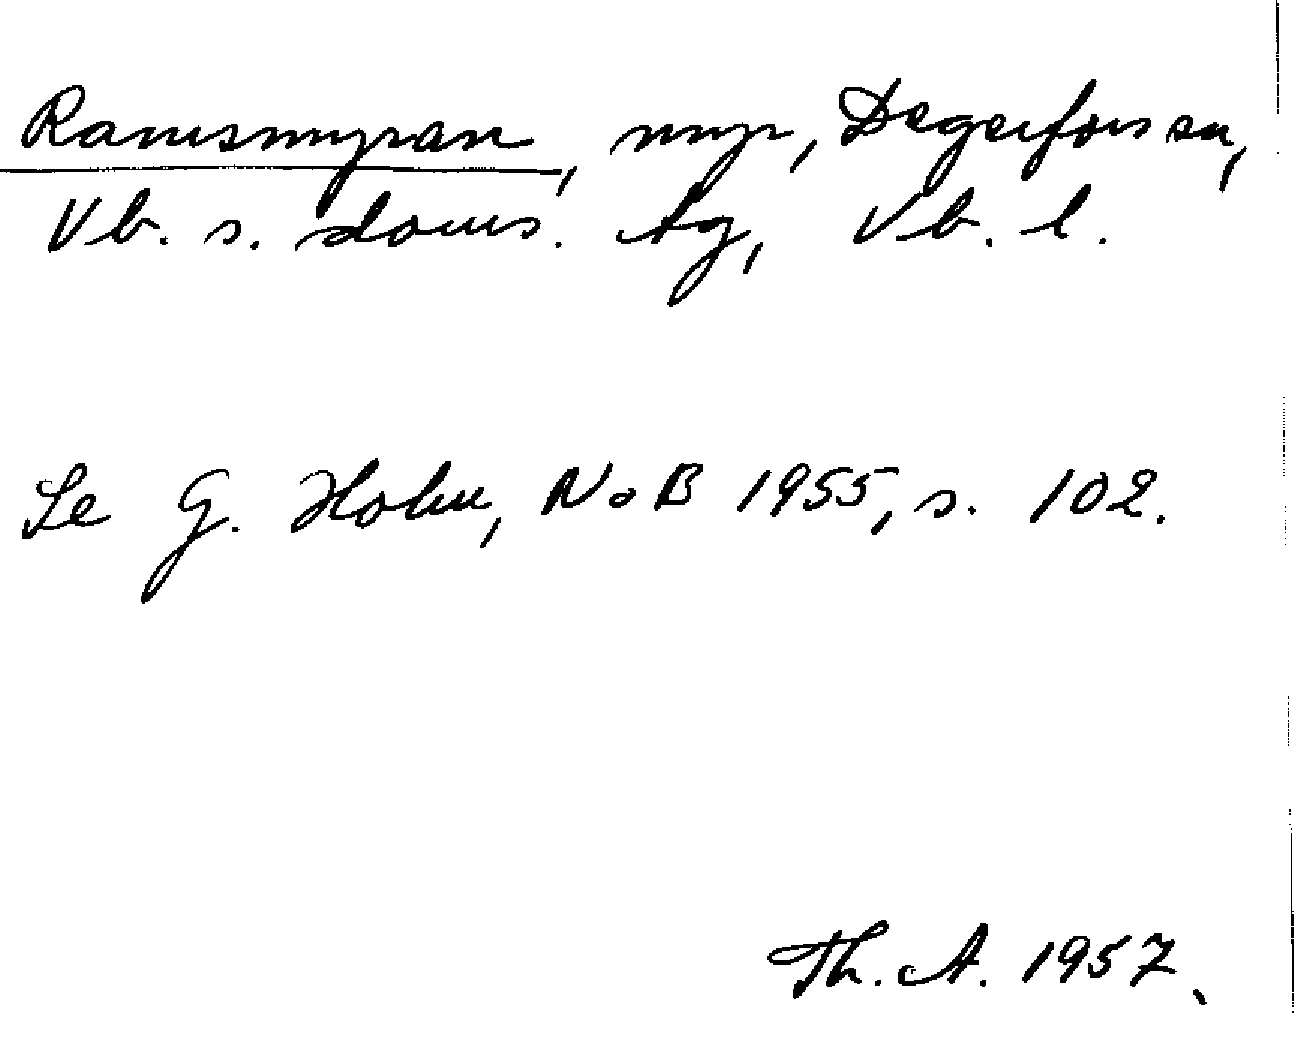 Ramsmyran, myr, Degerfors sn,
Vb. s. doms. lg, Vb. l.
Se G. Holm, NoB 1955, s. 102.
Th. A. 1957.